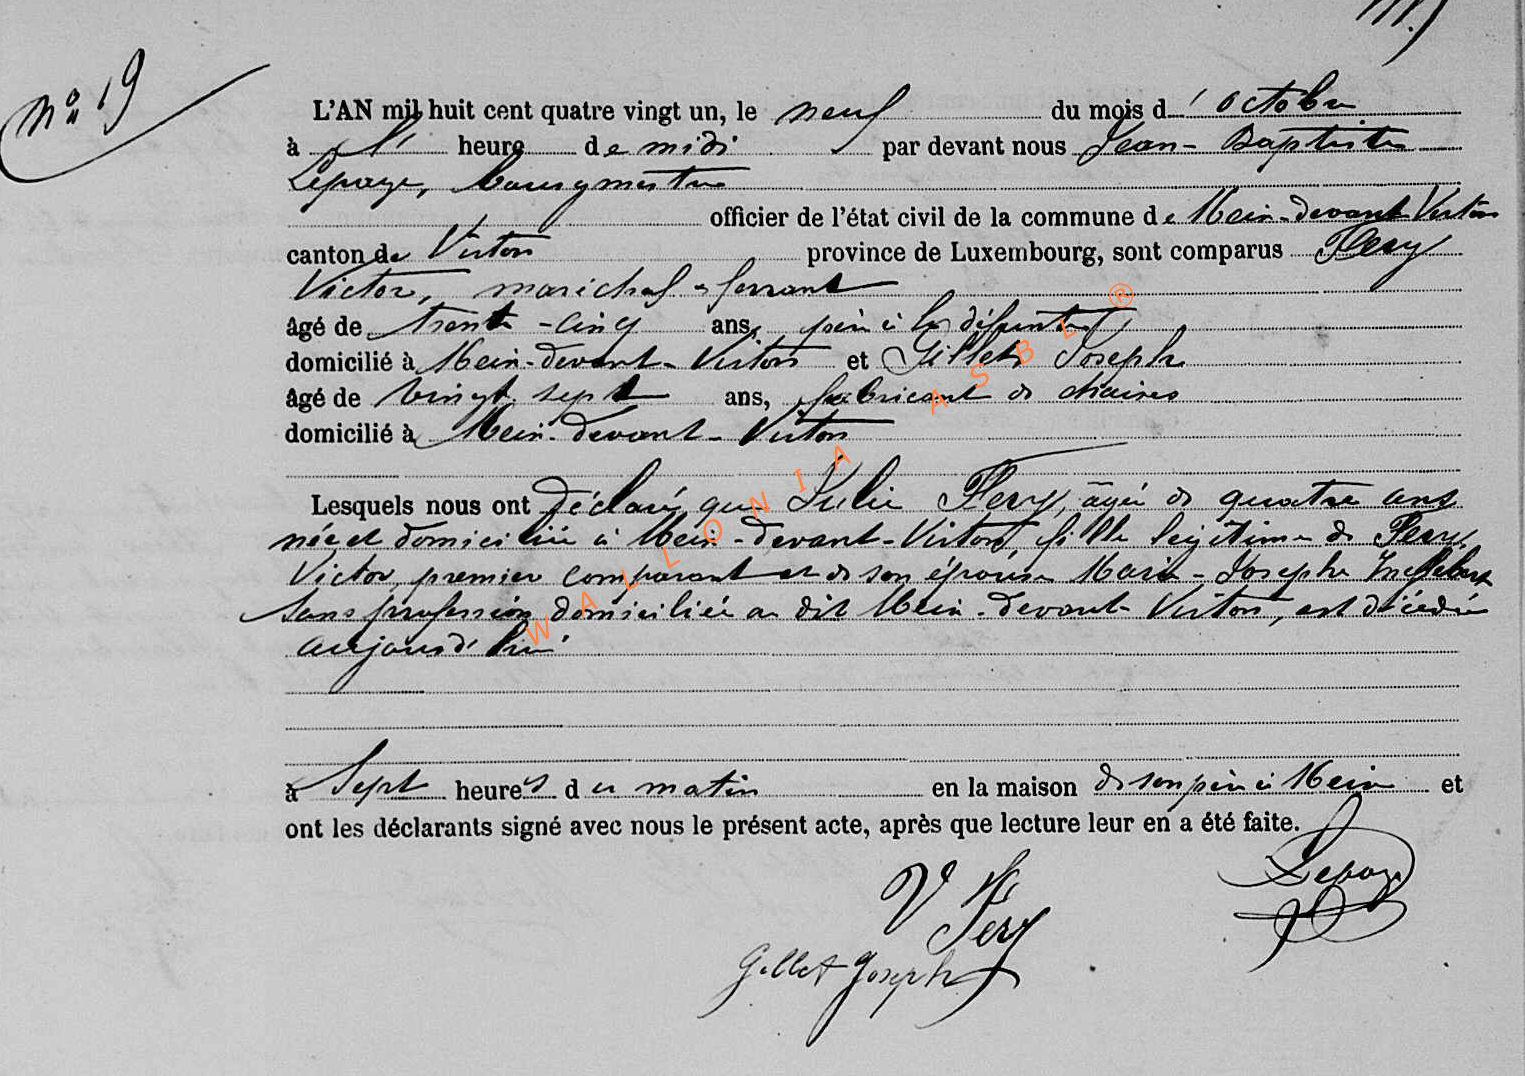 No 19
L'AN mil huit cent quatre vingt un, le neuf du mois d'octobre
à heure de midi par devant nous Jean-Baptiste
Lepage, bourgmestre
officier de l'état civil de la commune de Meix-devant-Virton
canton de Virton province de Luxembourg, sont comparus Fery
Victor, maréchal-ferrant
âgé de trente-cinq ans, père à la défunte,
domicilié à Meix-devant-Virton et Gillet Joseph
âgé de vingt sept ans, fabricant de chaises
domicilié à Meix-devant-Virton
Lesquels nous ont déclaré que Julie Fery, âgée de quatre ans
née et domiciliée à Meix-devant-Virton, fille légitime de Fery,
Victor, premier comparant et de son épouse Marie-Josephe
sans profession, domiciliée au dit Meix-devant-Virton, est décédée
aujourd'hui
à Sept heures du matin en la maison de son père à Meix et
ont les déclarants signé avec nous le présent acte, après que lecture leur en a été faite.
Lepage
V Fery
Gillet Joseph
WALLONIA ASBL ®